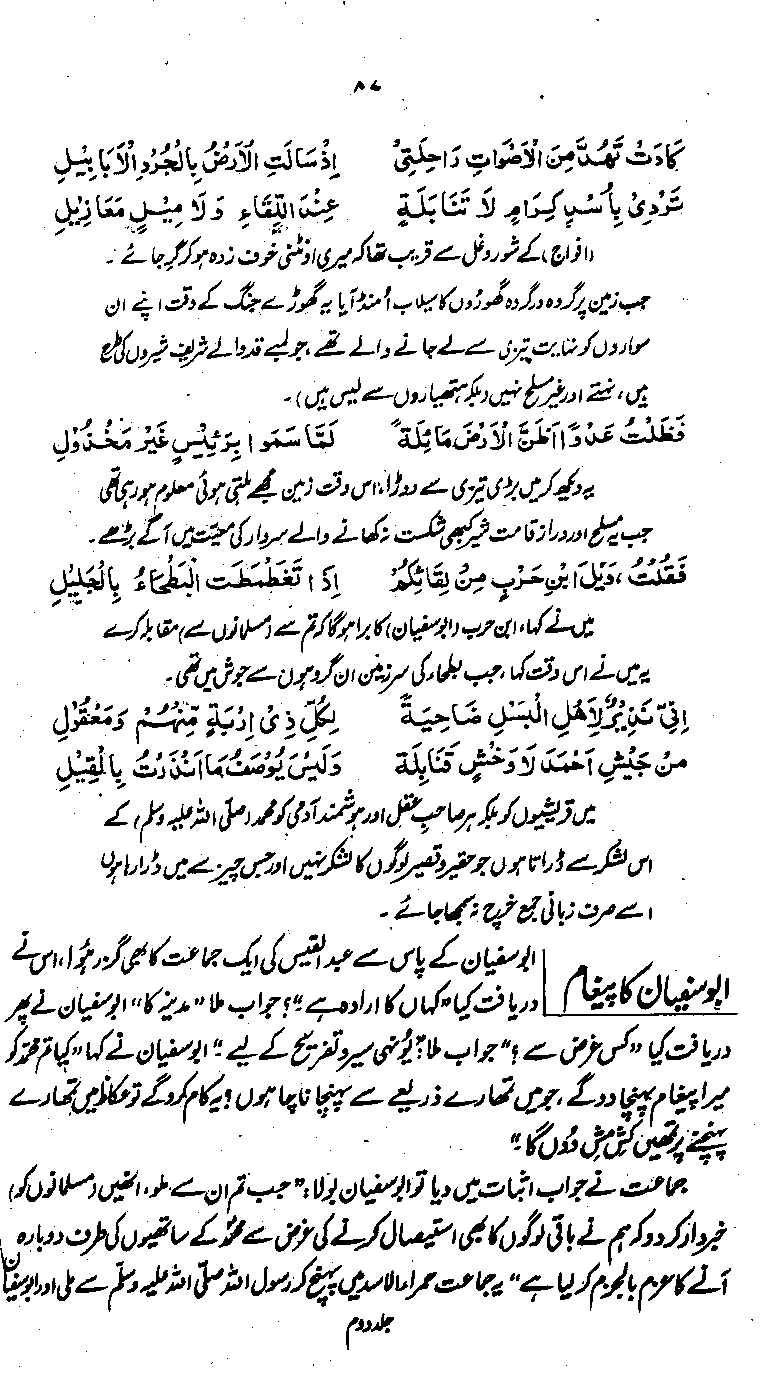 ۸۷
كَادَتْ تُهَدُّ مِنَ الْاَصْوَاتِ رَاحِلَتِیْ اِذْ سَالَتِ الْاَرْضُ بِالْجُرْدِ الْاَبَابِیْلِ
تَرْدِیْ بِاُسْدٍ كِرَامٍ لَا تَنَابِلَةٍ عِنْدَ اللِّقَاءِ وَلَا مِیْلٍ مَعَازِیْلِ
(افواج) کے شور و غل سے قریب تھا کہ میری اونٹنی خوف زدہ ہو کر گر جائے ۔
جب زمین پر گروہ در گروہ گھوڑوں کا سیلاب امنڈ آیا یہ گھوڑے جنگ کے وقت اپنے ان
سواروں کو نہایت تیزی سے لے جانے والے تھے ، جو لمبے قد والے شریف شیروں کی طرح
ہیں ، نہتے اور غیر مسلح نہیں (بلکہ ہتھیاروں سے لیس ہیں) ۔
فَظَلْتُ عَدْوًا اَظُنُّ الْاَرْضَ مَائِلَةً لَمَّا سَمَوْا بِرَئِیْسٍ غَیْرِ مَخْذُوْلِ
یہ دیکھ کر میں بڑی تیزی سے دوڑا ، اس وقت زمین مجھے ہلتی ہوئی معلوم ہو رہی تھی
جب یہ مسلح اور دراز قامت شیر کبھی شکست نہ کھانے والے سردار کی معیت میں آگے بڑھے ۔
فَقُلْتُ ، وَیْلَ ابْنِ حَرْبٍ مِنْ لِقَائِكُمْ اِذَا تَغَطْمَطَتِ الْبَطْحَاءُ بِالْجَلِیْلِ
میں نے کہا ، ابن حرب (ابوسفیان) کا برا ہوگا کہ تم سے (مسلمانوں سے) مقابلہ کرے
یہ میں نے اس وقت کہا ، جب بطحاء کی سرزمین ان گروہوں سے جوش میں تھی ۔
اِنِّیْ نَذِیْرٌ لِاَهْلِ الْبَسْلِ ضَاحِیَةً لِكُلِّ ذِیْ اِرْبَةٍ مِنْهُمْ وَمَعْقُوْلِ
مِنْ جَیْشِ اَحْمَدَ لَا وَخْشٍ قَنَابِلَةٍ وَلَیْسَ یُوْصَفُ مَا اَنْذَرْتُ بِالْقِیْلِ
میں قریشیوں کو بلکہ ہر صاحب عقل اور ہوشمند آدمی کو محمد (صلی اللہ علیہ وسلم) کے
اس لشکر سے ڈراتا ہوں جو حقیر و قصیر لوگوں کا لشکر نہیں اور جس چیز سے میں ڈرا رہا ہوں
اسے صرف زبانی جمع خرچ نہ سمجھا جائے ۔
ابوسفیان کا پیغام
ابوسفیان کے پاس سے عبدالقیس کی ایک جماعت کا بھی گزر ہوا ، اس نے
دریافت کیا "کہاں کا ارادہ ہے ؟" جواب ملا "مدینہ کا" ابوسفیان نے پھر
دریافت کیا "کس غرض سے ؟" جواب ملا ؟ یونہی سیر و تفریح کے لیے" ابوسفیان نے کہا "کیا تم محمدؐ کو
میرا پیغام پہنچا دو گے ، جو میں تمھارے ذریعے سے پہنچانا چاہتا ہوں ؟ یہ کام کردو گے تو عکاظ میں تمھارے
پہنچنے پر تمھیں کش مش دوں گا"
جماعت نے جواب اثبات میں دیا تو ابوسفیان بولا : "جب تم ان سے ملو ، انھیں (مسلمانوں کو)
خبردار کردو کہ ہم نے باقی لوگوں کا بھی استیصال کرنے کی غرض سے محمدؐ کے ساتھیوں کی طرف دوبارہ
آنے کا عزم بالجزم کر لیا ہے" یہ جماعت حمراء الاسد میں پہنچ کر رسول اللہ صلّی اللہ علیہ وسلّم سے ملی اور ابوسفیان
جلد دوم